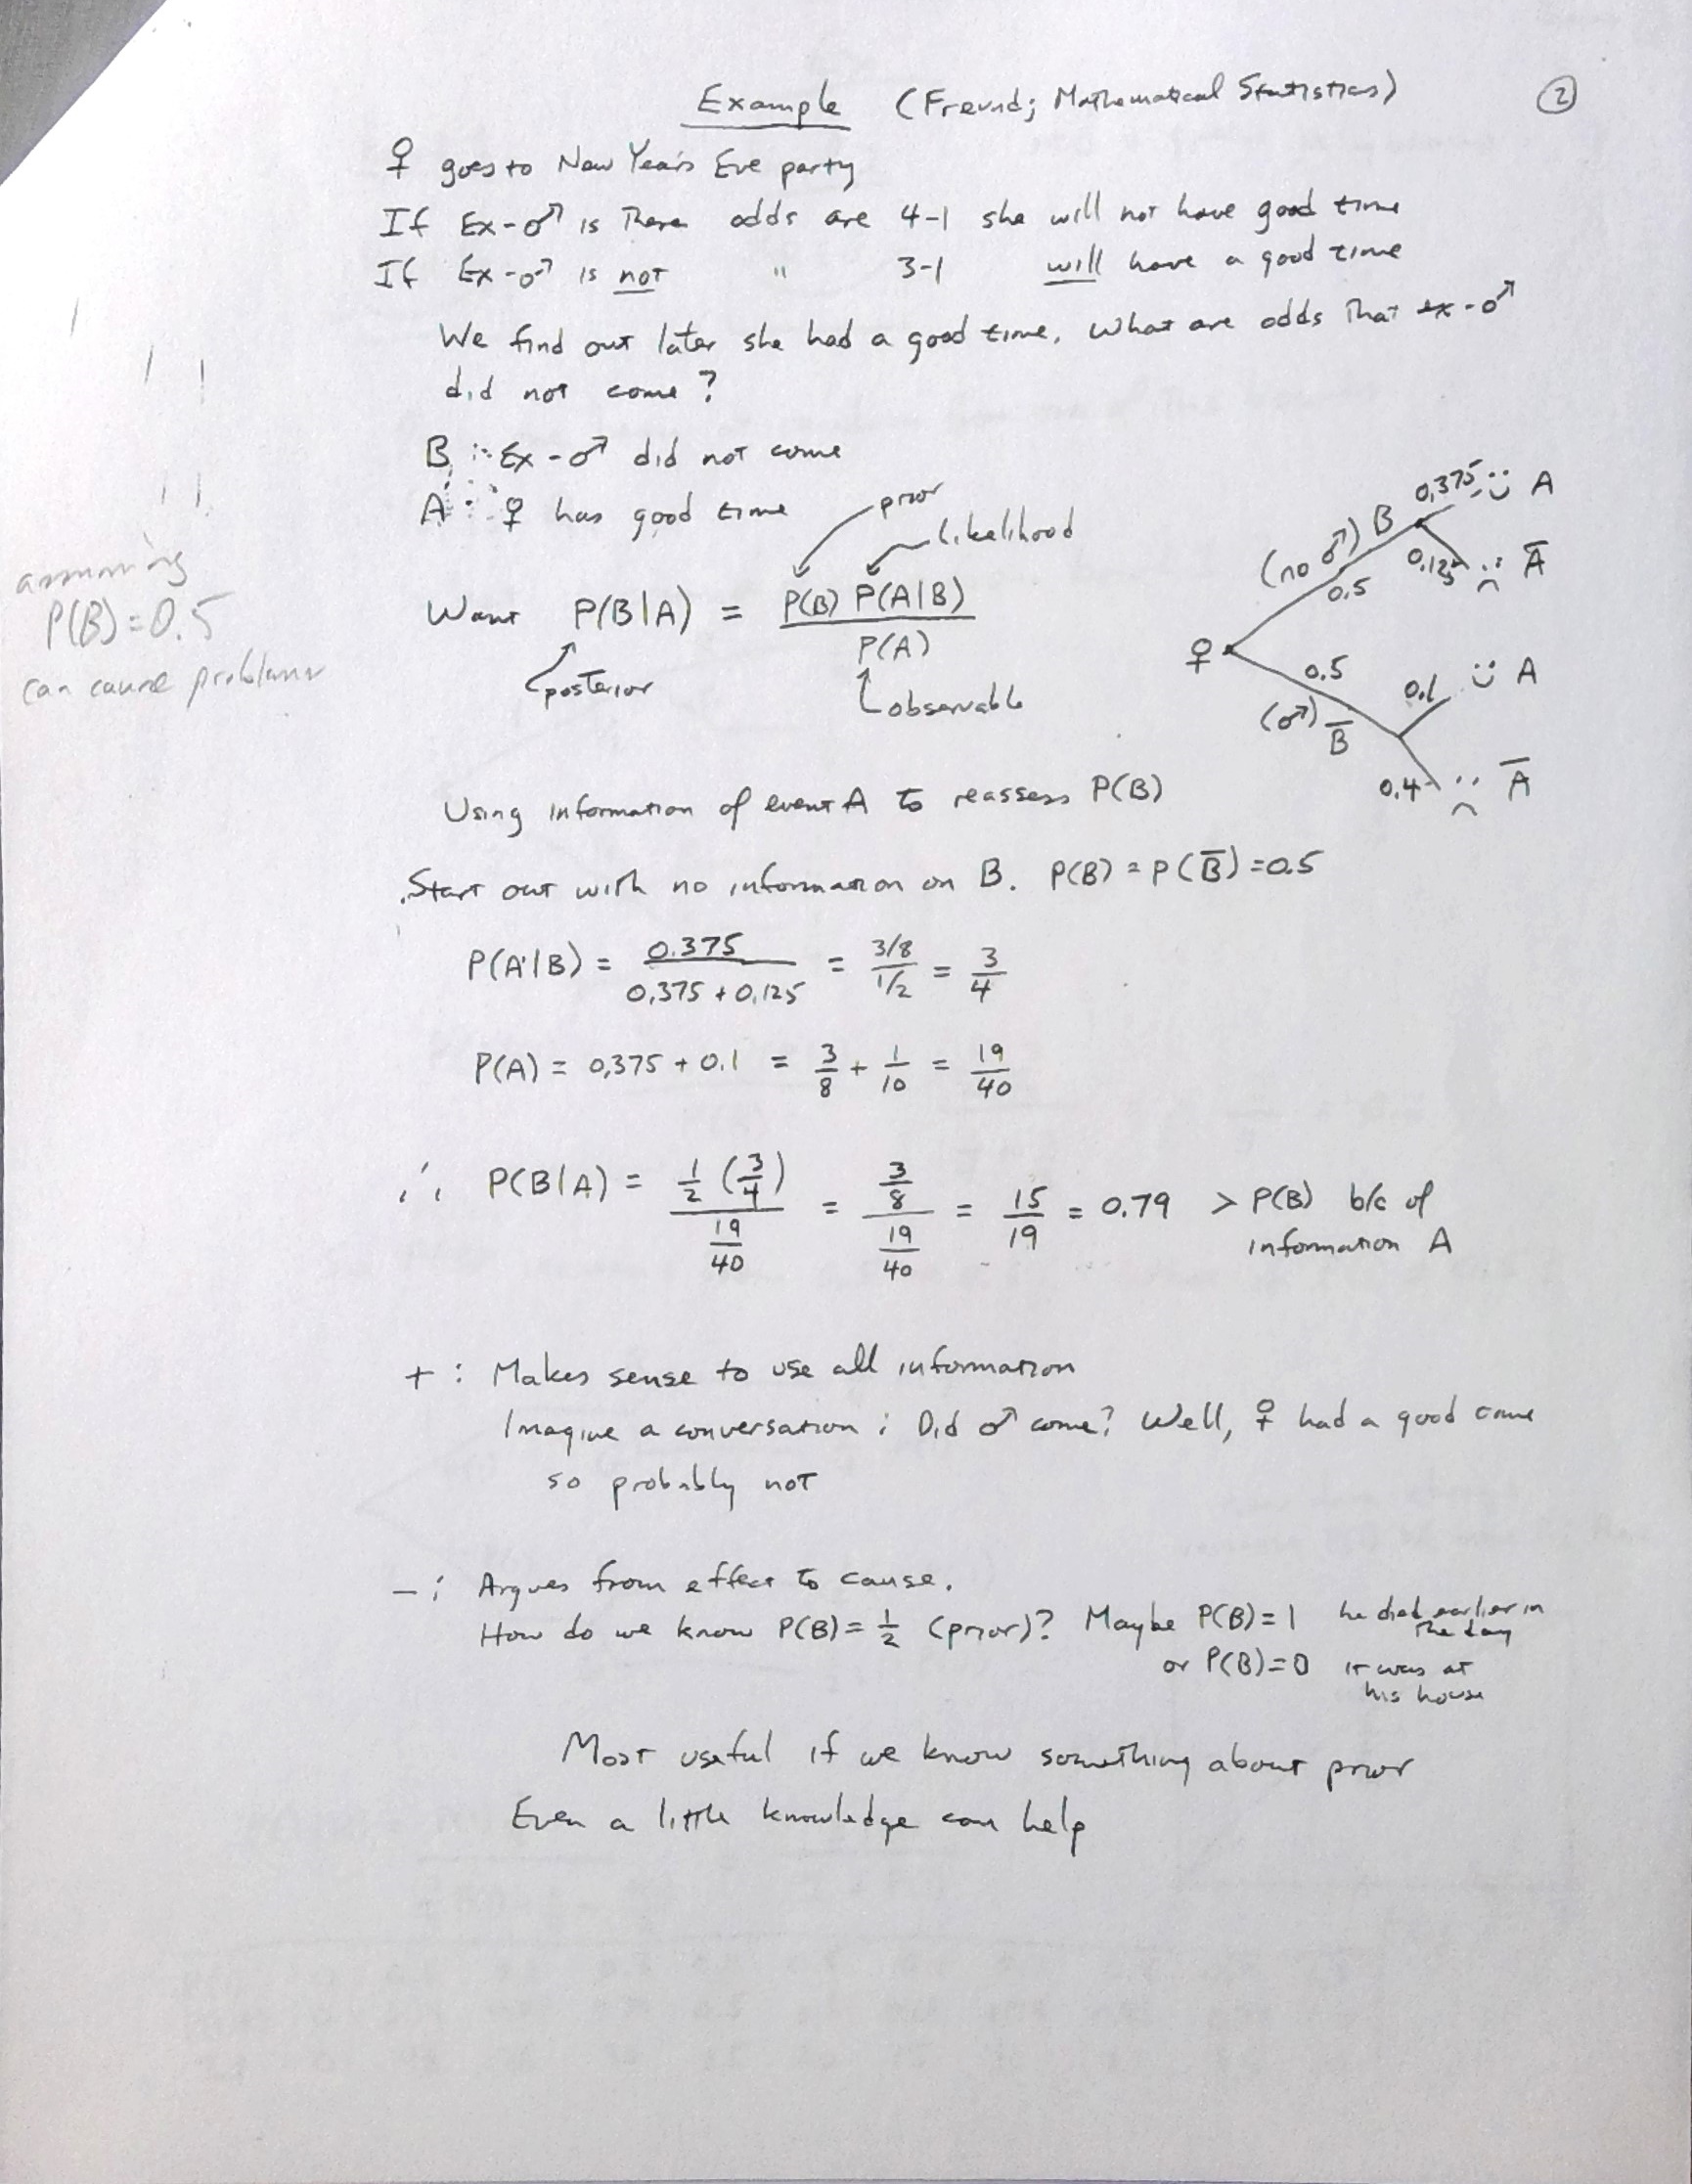 Example (Freund; Mathematical Statistics) ②
♀ goes to New Year's Eve party
If Ex-♂ is There odds are 4-1 she will not have good time
If Ex-♂ is not " 3-1 will have a good time
We find out later she had a good time. What are odds That ex-♂
did not come?
B : Ex-♂ did not come
A : ♀ has good time
prior
Likelihood
assuming
P(B)=0.5
can cause problems
Want P(B|A) = P(B) P(A|B) / P(A)
posterior
observable
0.375 A
(no ♂) B
0.125 A̅
0.5
♀
0.5
0.1 A
(♂) B̅
0.4 A̅
Using information of event A to reassess P(B)
Start out with no information on B. P(B) = P(B̅) = 0.5
P(A|B) = 0.375 / 0.375 + 0.125 = 3/8 / 1/2 = 3/4
P(A) = 0.375 + 0.1 = 3/8 + 1/10 = 19/40
∴ P(B|A) = 1/2 (3/4) / 19/40 = 3/8 / 19/40 = 15/19 = 0.79 > P(B) b/c of
information A
+ : Makes sense to use all information
Imagine a conversation : Did ♂ come? Well, ♀ had a good time
so probably not
- : Argues from effect to cause.
How do we know P(B) = 1/2 (prior)? Maybe P(B) = 1 he died earlier in
The day
or P(B)=0 it was at
his house
Most useful if we know something about prior
Even a little knowledge can help